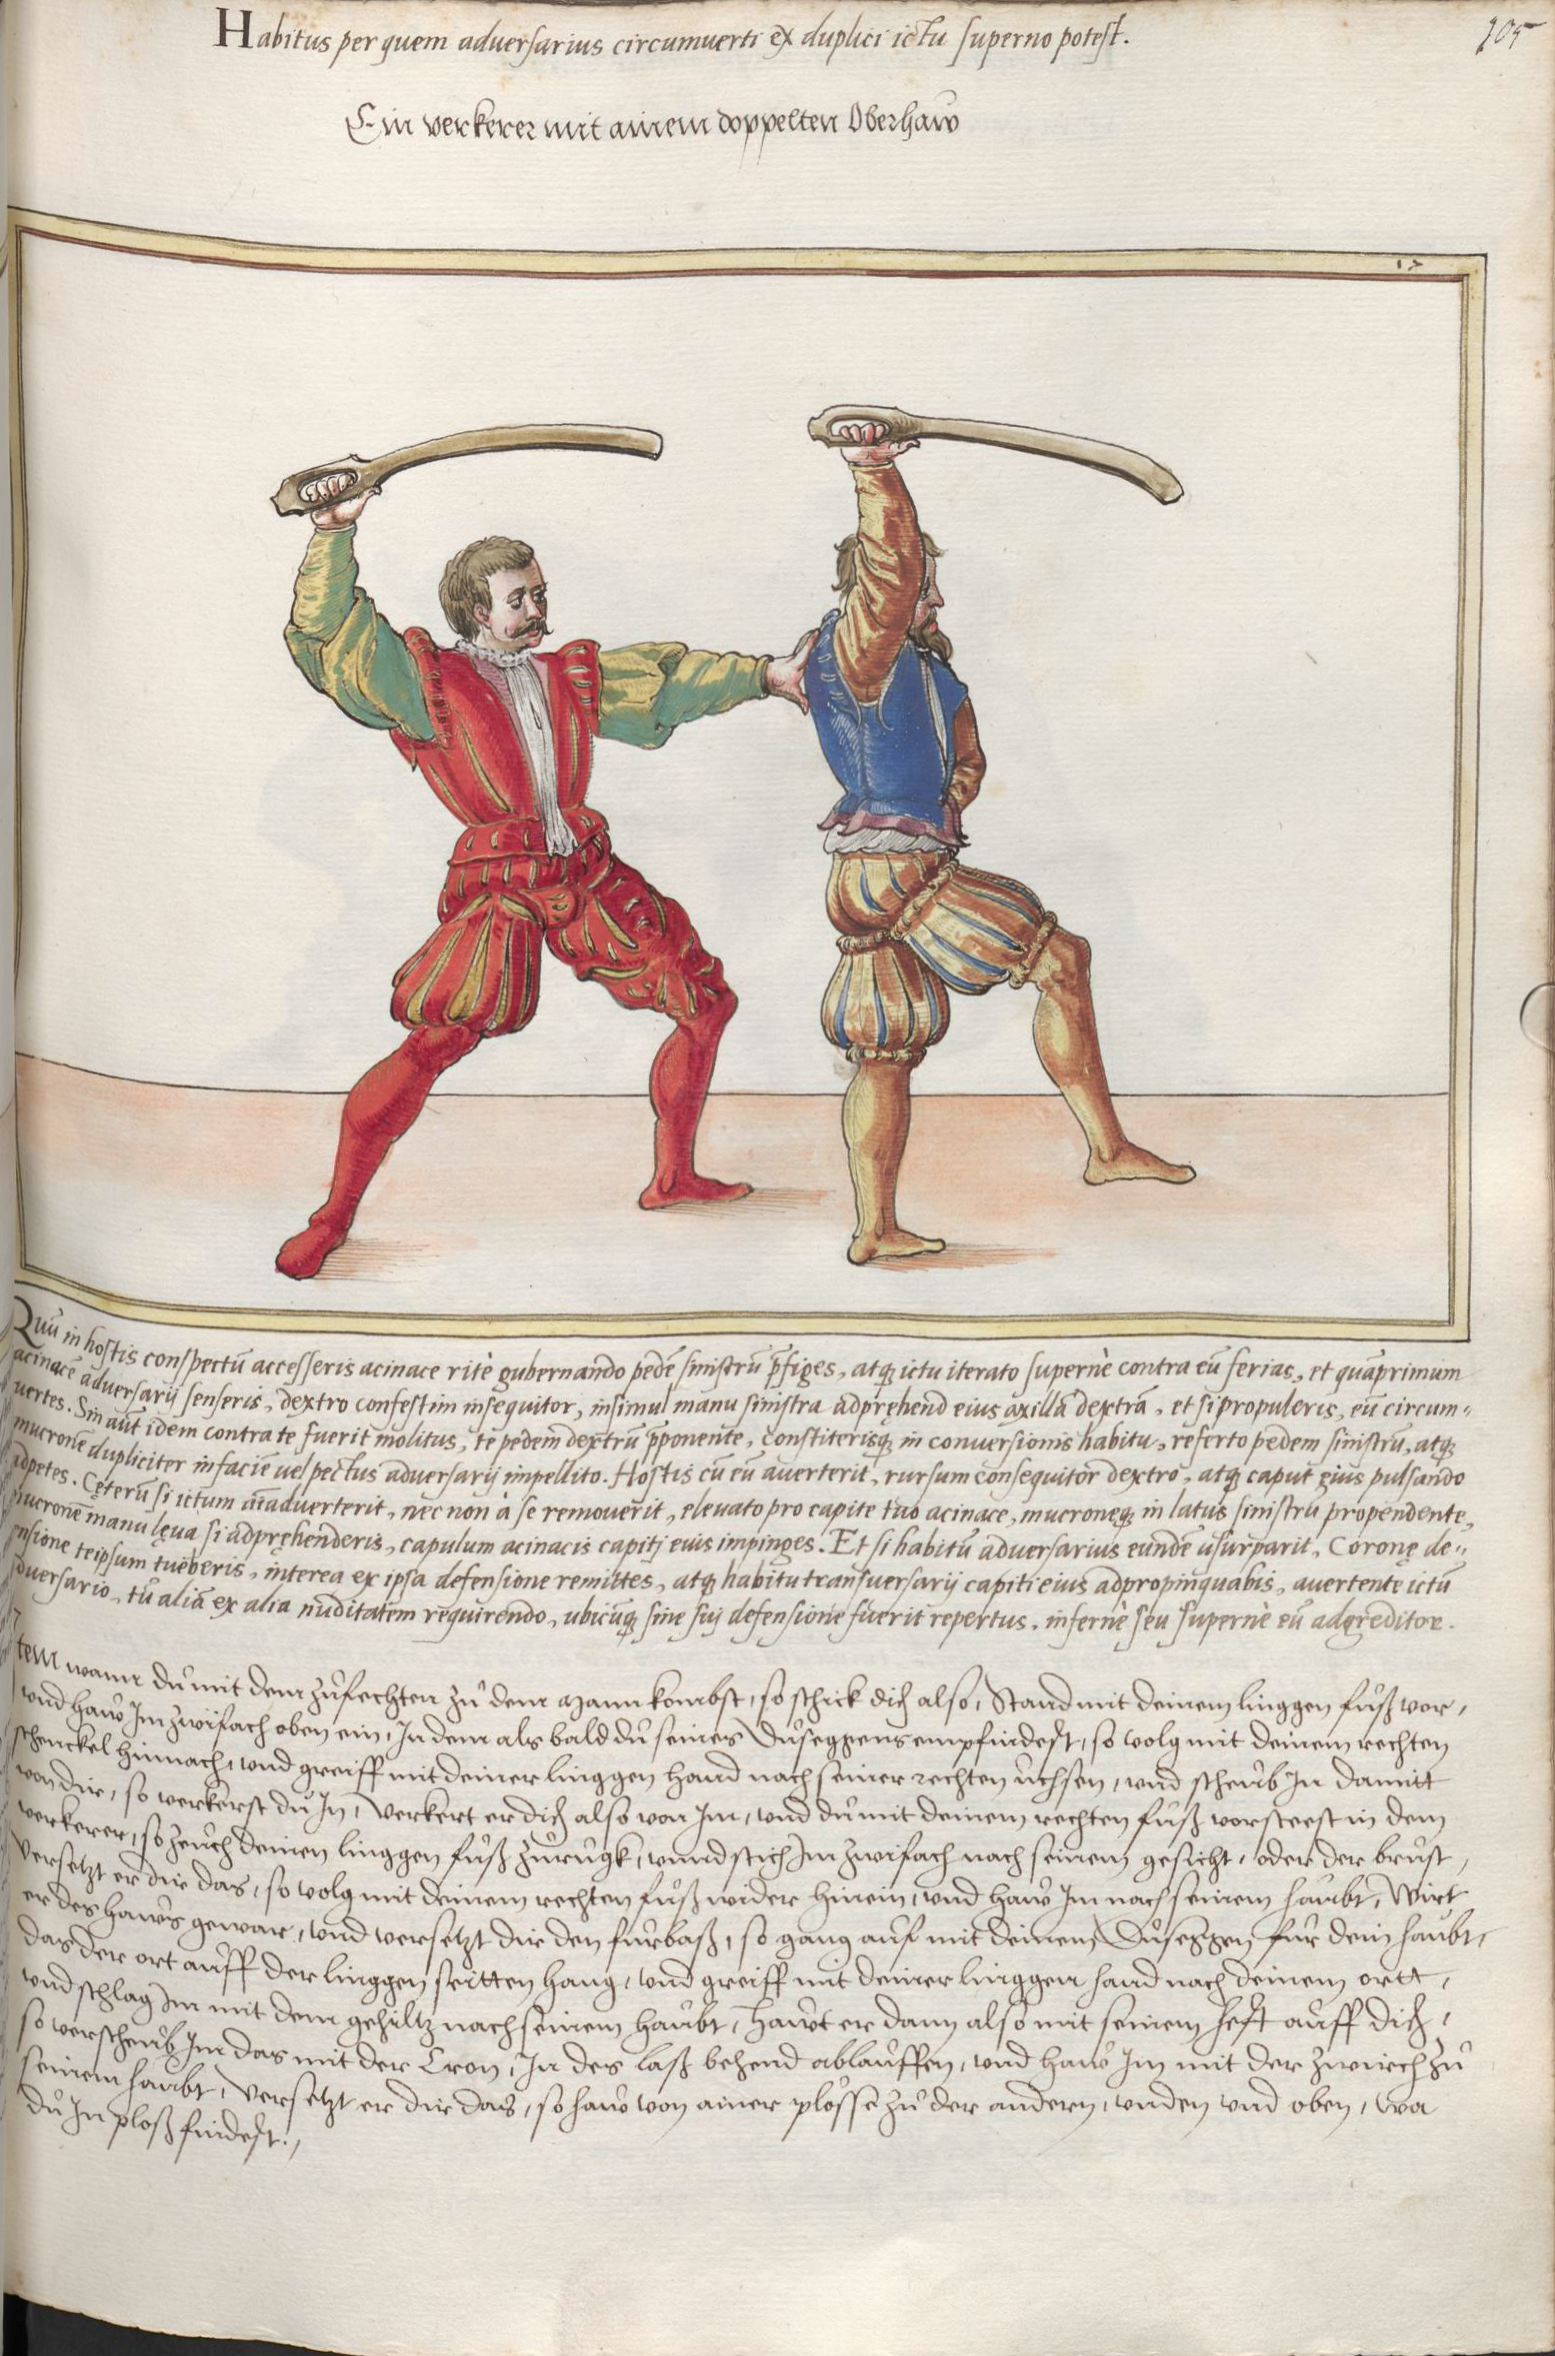 Habitus per quem adversarius circumverti ex duplici ictu superno potest.
105
Ein verkerer mit ainem doppelten Oberhaw
17
Quū in hostis conspectū accesseris acinace ritè gubernando pedē sinistrū p̄figes, atq; ictu iterato supernè contra eū ferias, et quāprimum
acinacē adversarij senseris, dextro confestim insequitor, insimul manu sinistra adpręhend eius axillā dextrā, et si propuleris, eū circum„
vertes. Sin aūt idem contra te fuerit molitus, te pedem dextrū p̄ponente, constiterisq; in conversionis habitu, referto pedem sinistrū, atq;
mucronē dupliciter in faciē vel pectus adversarij impellito. Hostis cū eū averterit, rursum consequitor dextro, atq; caput eius pulsando
adpetes. Cęterū si ictum aīadverterit, nec non à se removerit, elevato pro capite tuo acinace, mucroneq; in latus sinistrū propendente,
mucronē manu lęva si adpręhenderis, capulum acinacis capiti eius impinges. Et si habitū adversarius eundē usurparit, Coronę de„
ensione teipsum tueberis, interea ex ipsa defensione remittes, atq; habitu transversarij capiti eius adpropinquabis, avertente ictū
dversario, tū aliā ex alia nuditatem requirendo, ubicūq; sine sui defensione fuerit repertus, infernè seu supernè eū adgreditor.
Item wann dů mit dem zůfechten zů dem Mann kombst, so schick dich also, Stand mit deinem linggen fůß vor,
vnd haw Im zwifach oben ein, In dem als bald dů seines Důseggens empfindest, so volg mit deinem rechten
schenckel hinnach, vnd greiff mit deiner linggen hand nach seiner rechten ůchsen, vnd scheůb In damitt
von dir, so verkerst dů In, Verkert er dich also von Im, vnd dů mit deinem rechten fůß vorsteest in dem
verkerer, so zeůch deinen linggen fůß zůrůgk, vnnd stich Im zwifach nach seinem gesicht, oder der brůst,
Versetzt er dir das, so volg mit deinem rechten fůß wider hinein, vnd haw Im nach seinem haůbt, Wirt
er des haw's gewar, vnd versetzt dir den fůrbaß, so gang aůf mit deinem Důseggen fůr dein haůbt,
das der ort aůff der linggen seitten hang, vnd greiff mit deiner linggen hand nach deinem ortt,
vnd schlag Im mit dem gehiltz nach seinem haůbt, Hawt er dann also mit seinem hefft aůff dich,
so verscheůb Im das mit der Cron, In des laß behend ablaůffen, vnd haw Im mit der zwirch zů
seinem haůbt, Versetzt er dir das, so haw von ainer plösse zů der andern, vnden vnd oben, wa
dů In ploß findest.